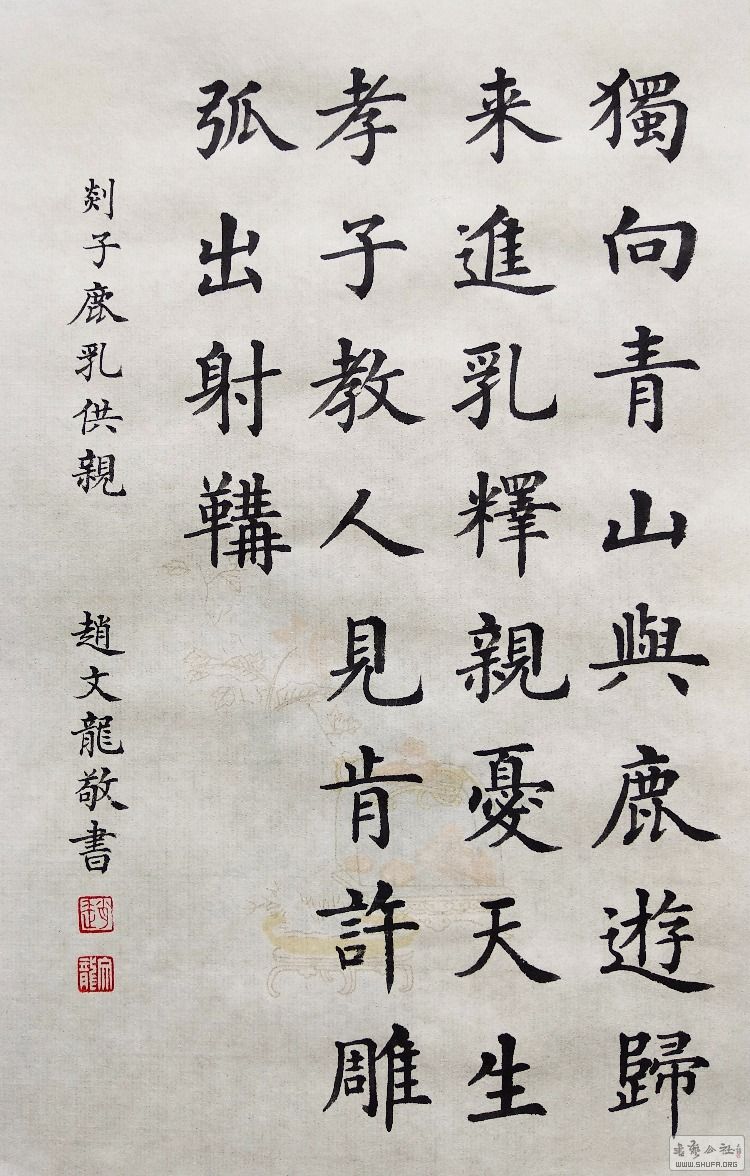 獨向青山與鹿遊歸
来進乳釋親憂天生
孝子教人見肯許雕
弧出射鞲
剡子鹿乳供親
趙文龍敬書
WWW.SHUFA.ORG